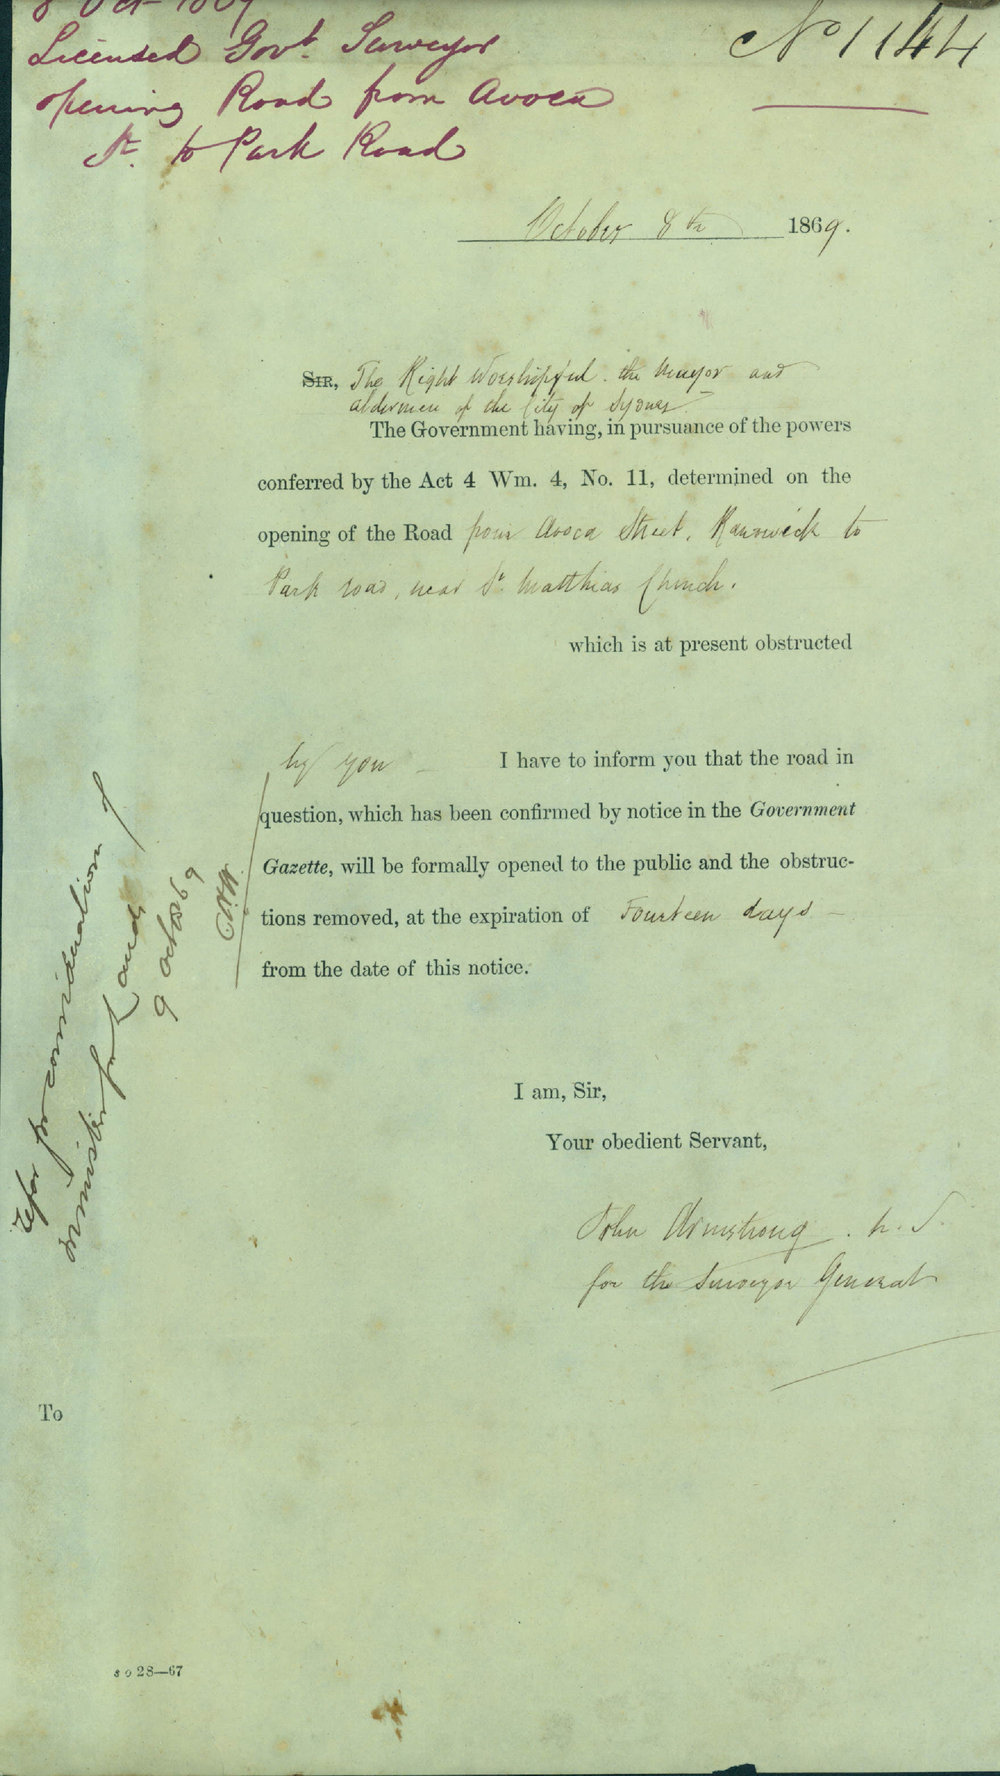 8 Oct 1869
Licensed Govt. Surveyor
opening Road from Avoca
St. to Park Road
No 1144
October 8th 1869.
Sir, The Right Worshipful the Mayor and
aldermen of the City of Sydney
The Government having, in pursuance of the powers
conferred by the Act 4 Wm. 4, No. 11, determined on the
opening of the Road from Avoca Street, Randwick to
Park road, near St. Matthias Church.
which is at present obstructed
by you — I have to inform you that the road in
question, which has been confirmed by notice in the Government
Gazette, will be formally opened to the public and the obstruc-
tions removed, at the expiration of Fourteen days —
from the date of this notice.
I am, Sir,
Your obedient Servant,
John Armstrong. L. S.
for the Surveyor General
Refer for consideration of
Minister for Lands
9 Oct 69
To
s o 28—67